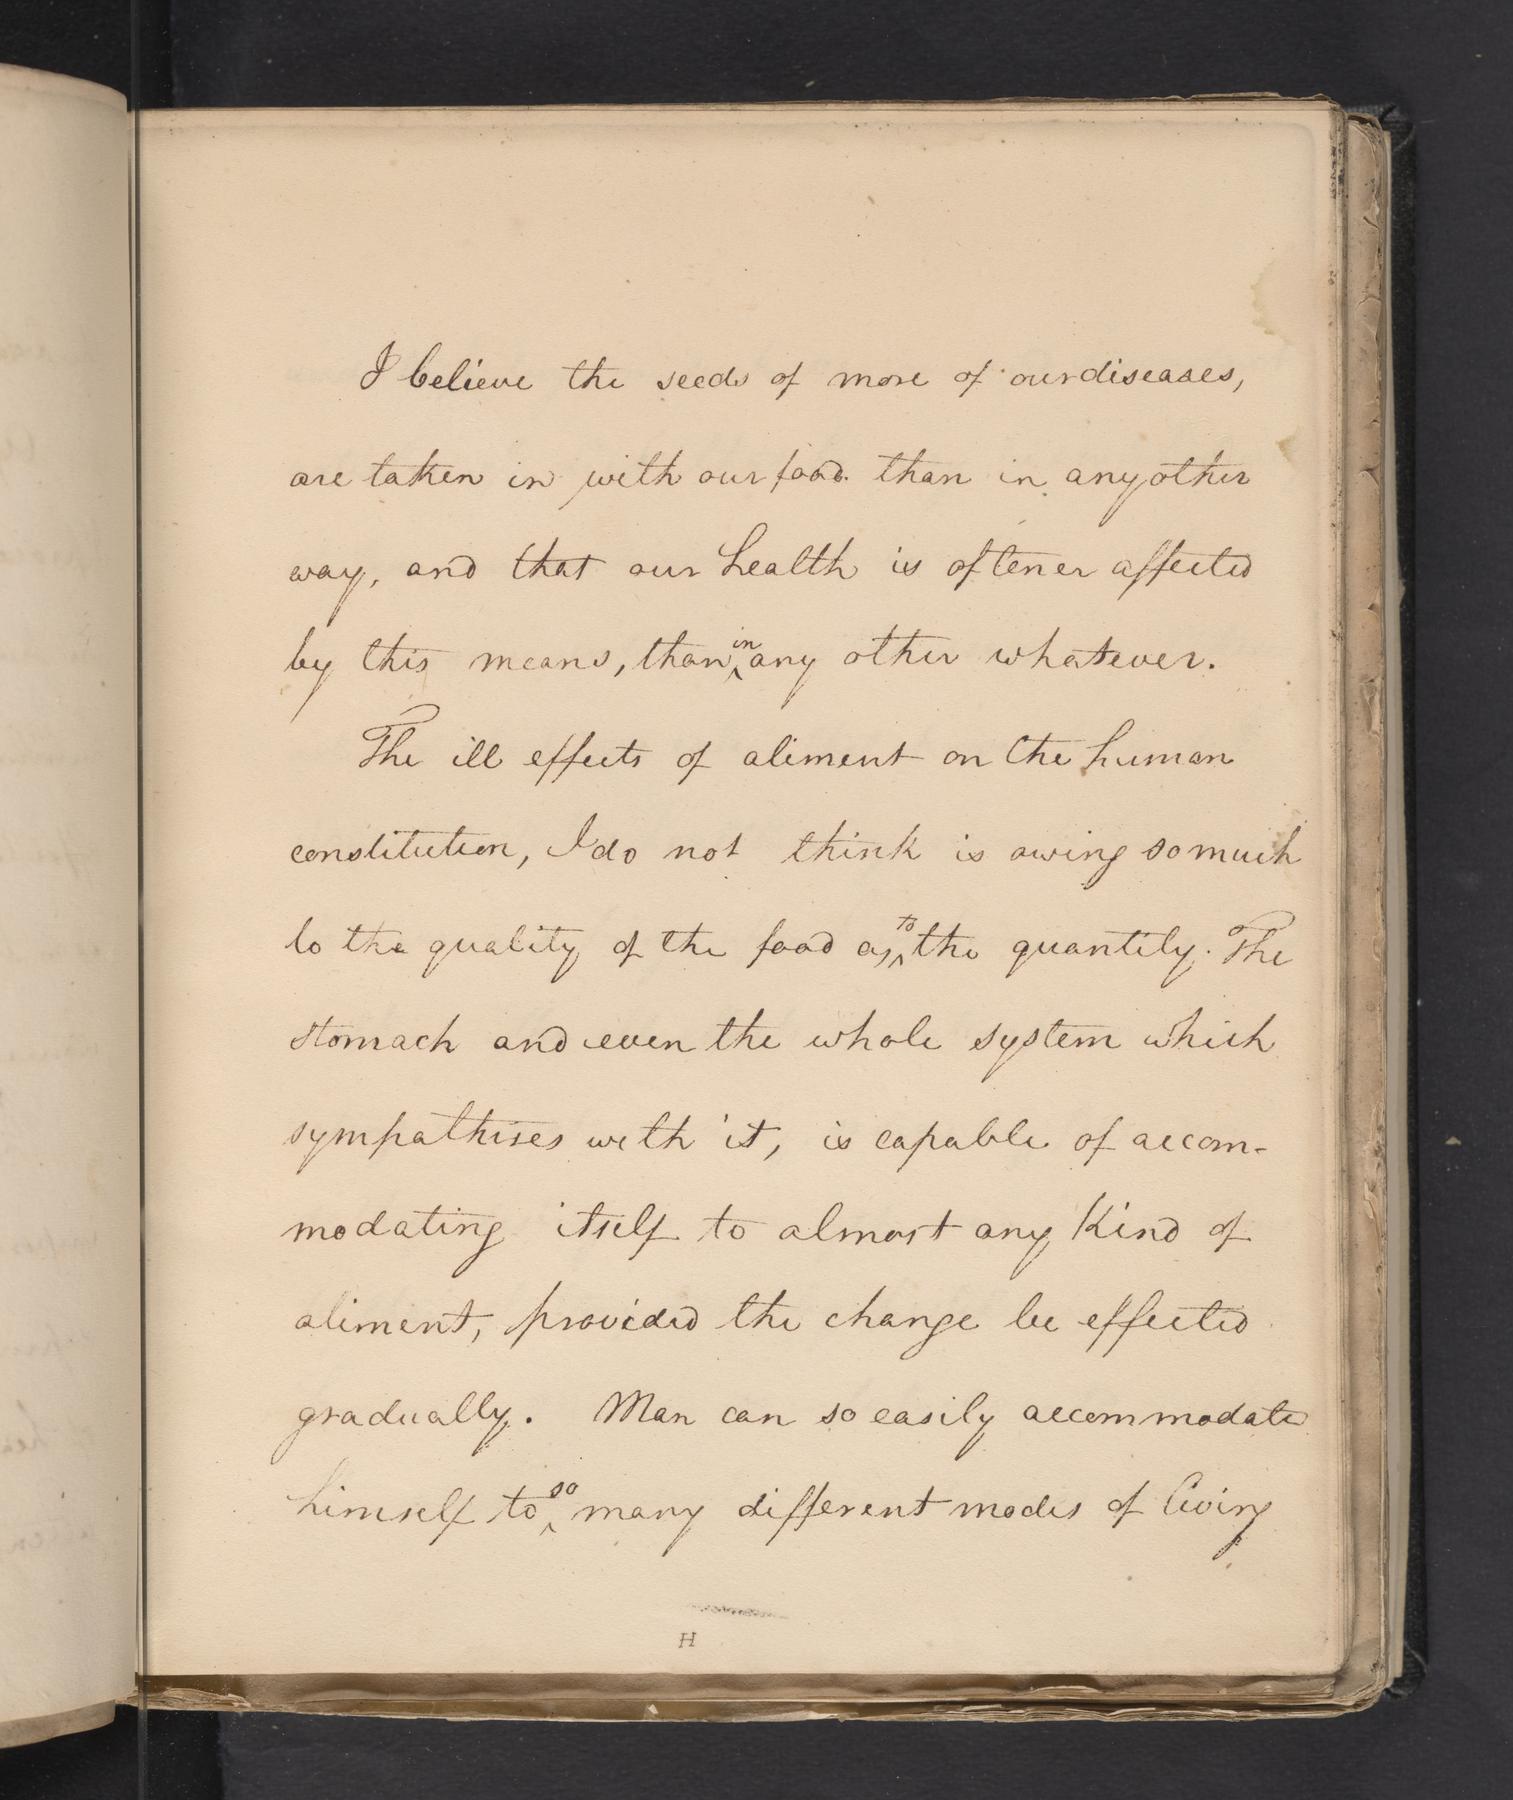 I believe the seeds of more of our diseases,
are taken in with our food than in any other
way, and that our health is oftener affected
by this means, than in any other whatever.
The ill effects of aliment on the human
constitution, I do not think is owing so much
to the quality of the food as to the quantity. The
stomach and even the whole system which
sympathises with it, is capable of accom-
modating itself to almost any kind of
aliment, provided the change be effected
gradually. Man can so easily accommodate
himself to so many different modes of living
H